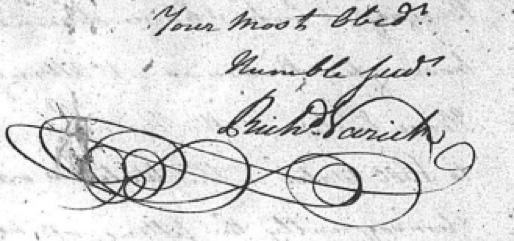 Your most Obedt.
Humble Servt.
Richd. Varick